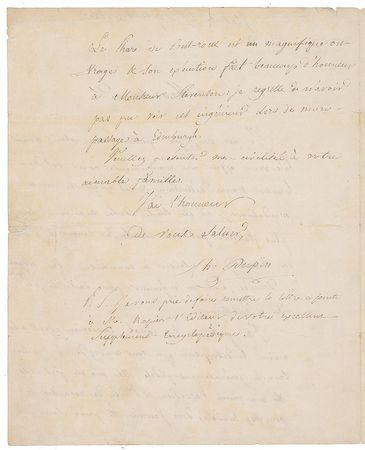 Le Phare de Bell-rock est un magnifique ou-
vrage & son exécution fait beaucoup d'honneur
à Monsieur Stevenson : je regrette de n'avoir
pas pu voir cet ingénieur lors de mon
passage à Edimburg.
Veuillez présenter ma civilité à votre
aimable famille.
J'ai l'honneur
de vous saluer,
Ch. Dupin
P.S. Je vous prie de faire remettre la lettre ci jointe
à Mr. Napier l'Editeur de votre excellent
Supplément Encyclopédique.